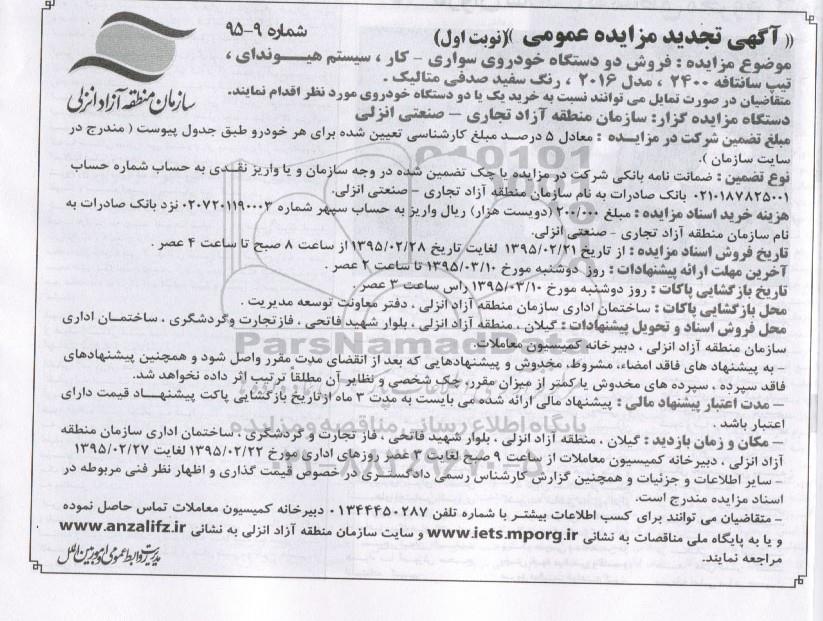 (( آگهی تجدید مزایده عمومی ))(نوبت اول) شماره ۹-۹۵
سازمان منطقه آزاد انزلی
موضوع مزایده : فروش دو دستگاه خودروی سواری - کار ، سیستم هیوندای ،
تیپ سانتافه ۲۴۰۰ ، مدل ۲۰۱۶ ، رنگ سفید صدفی متالیک .
متقاضیان در صورت تمایل می توانند نسبت به خرید یک یا دو دستگاه خودروی مورد نظر اقدام نمایند.
دستگاه مزایده گزار: سازمان منطقه آزاد تجاری – صنعتی انزلی
مبلغ تضمین شرکت در مزایده : معادل ۵ درصد مبلغ کارشناسی تعیین شده برای هر خودرو طبق جدول پیوست ( مندرج در
سایت سازمان ).
نوع تضمین : ضمانت نامه بانکی شرکت در مزایده یا چک تضمین شده در وجه سازمان و یا واریز نقدی به حساب شماره حساب
۰۲۱۰۱۸۷۸۲۵۰۰۱ بانک صادرات به نام سازمان منطقه آزاد تجاری – صنعتی انزلی.
هزینه خرید اسناد مزایده : مبلغ ۲۰۰/۰۰۰ (دویست هزار) ریال واریز به حساب سپهر شماره ۰۲۰۷۲۰۱۱۹۰۰۰۳ نزد بانک صادرات به
نام سازمان منطقه آزاد تجاری - صنعتی انزلی.
تاریخ فروش اسناد مزایده : از تاریخ ۱۳۹۵/۰۲/۲۱ لغایت تاریخ ۱۳۹۵/۰۲/۲۸ از ساعت ۸ صبح تا ساعت ۴ عصر .
آخرین مهلت ارائه پیشنهادات : روز دوشنبه مورخ ۱۳۹۵/۰۳/۱۰ تا ساعت ۲ عصر .
تاریخ بازگشایی پاکات : روز دوشنبه مورخ ۱۳۹۵/۰۳/۱۰ راس ساعت ۳ عصر
محل بازگشایی پاکات : ساختمان اداری سازمان منطقه آزاد انزلی ، دفتر معاونت توسعه مدیریت .
محل فروش اسناد و تحویل پیشنهادات : گیلان ، منطقه آزاد انزلی ، بلوار شهید فاتحی ، فاز تجارت و گردشگری ، ساختمان اداری
سازمان منطقه آزاد انزلی ، دبیرخانه کمیسیون معاملات.
- به پیشنهاد های فاقد امضاء، مشروط، مخدوش و پیشنهادهایی که بعد از انقضای مدت مقرر واصل شود و همچنین پیشنهادهای
فاقد سپرده ، سپرده های مخدوش یا کمتر از میزان مقرر، چک شخصی و نظایر آن مطلقاً ترتیب اثر داده نخواهد شد.
– مدت اعتبار پیشنهاد مالی : پیشنهاد مالی ارائه شده می بایست به مدت ۳ ماه از تاریخ بازگشایی پاکت پیشنهاد قیمت دارای
اعتبار باشد .
– مکان و زمان بازدید : گیلان ، منطقه آزاد انزلی ، بلوار شهید فاتحی ، فاز تجارت و گردشگری ، ساختمان اداری سازمان منطقه
آزاد انزلی ، دبیرخانه کمیسیون معاملات از ساعت ۹ صبح لغایت ۳ عصر روزهای اداری مورخ ۱۳۹۵/۰۲/۲۲ لغایت ۱۳۹۵/۰۲/۲۷
- سایر اطلاعات و جزئیات و همچنین گزارش کارشناس رسمی دادگستری در خصوص قیمت گذاری و اظهار نظر فنی مربوطه در
اسناد مزایده مندرج است.
- متقاضیان می توانند برای کسب اطلاعات بیشتر با شماره تلفن ۰۱۳۴۴۴۵۰۲۸۷ دبیرخانه کمیسیون معاملات تماس حاصل نموده
و یا به پایگاه ملی مناقصات به نشانی www.iets.mporg.ir و سایت سازمان منطقه آزاد انزلی به نشانی www.anzalifz.ir
مراجعه نمایند.
مدیریت روابط عمومی و امور بین الملل
ParsNamadData
پایگاه اطلاع رسانی مناقصه و مزایده